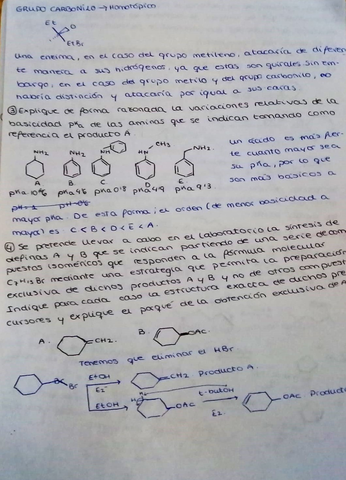 GRUPO CARBONILO → Homotópico
Et
D
Et Br
Una enzima, en el caso del grupo metileno, atacaría de diferen-
te manera a sus hidrógenos, ya que estos son quirales sin em-
bargo, en el caso del grupo metilo y del grupo carbonilo, no
habría distinción y atacaría por igual a sus caras.
③ Explique de forma razonada la variaciones relativas de la
basicidad pka de las aminas que se indican tomando como
referencia el producto A
NH2 NH2 NH HN CH3 NH2
A B C D E
pka 10'6 pka 4'6 pka 0'8 pka 4'9 pka 9'3
un ácido es más fuer-
te cuanto mayor sea
su pka, por lo que
son más básicos a
mayor pka. De esta forma, el orden (de menor basicidad a
mayor) es C < B < D < E < A.
④ Se pretende llevar a cabo en el laboratorio la síntesis de
olefinas A y B que se indican partiendo de una serie de com-
puestos isoméricos que responden a la fórmula molecular
C7H13Br mediante una estrategia que permita la preparación
exclusiva de dichos productos A y B y no de otros compuestos
Indique para cada caso la estructura exacta de dichos pre-
cursores y explique el porqué de la obtención exclusiva de A
A. =CH2. B. OAc.
Tenemos que eliminar el HBr
Br EtOH E2 =CH2 Producto A.
EtOH OAc t-butOH E2. OAc Producto